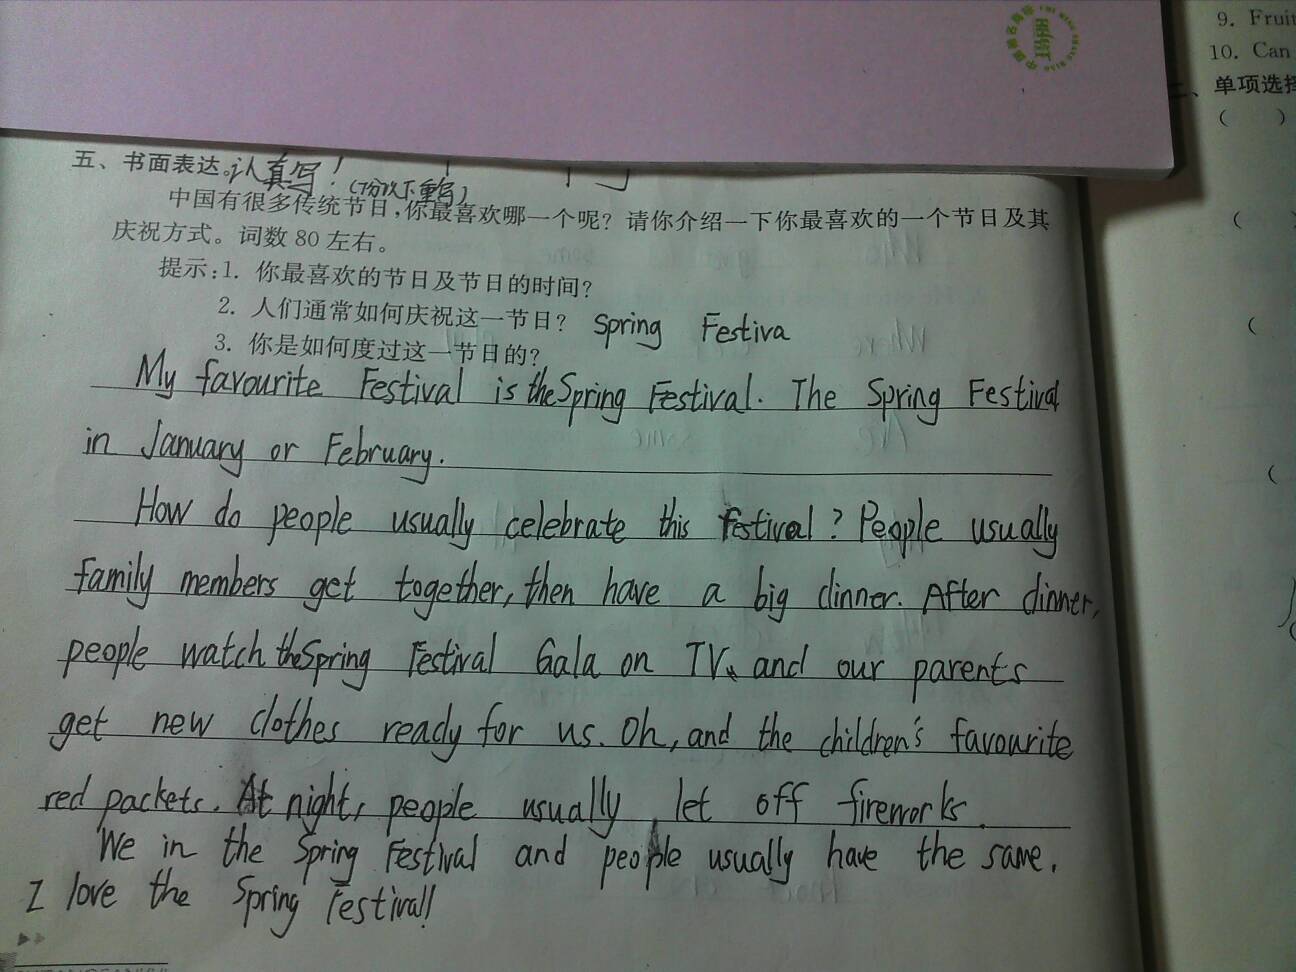 9. Fruit
10. Can
单项选择
(    )
五、书面表达。认真写！
(7分以下重写)
中国有很多传统节日,你最喜欢哪一个呢？请你介绍一下你最喜欢的一个节日及其
庆祝方式。词数 80 左右。
提示:1. 你最喜欢的节日及节日的时间？
2. 人们通常如何庆祝这一节日？ Spring Festiva
3. 你是如何度过这一节日的？
My favourite Festival is the Spring Festival. The Spring Festival
in January or February.
How do people usually celebrate this festival? People usually
family members get together, then have a big dinner. After dinner,
people watch the Spring Festival Gala on TV, and our parents
get new clothes ready for us. Oh, and the children's favourite
red packets. At night, people usually let off fireworks.
We in the Spring Festival and people usually have the same.
I love the Spring Festival!